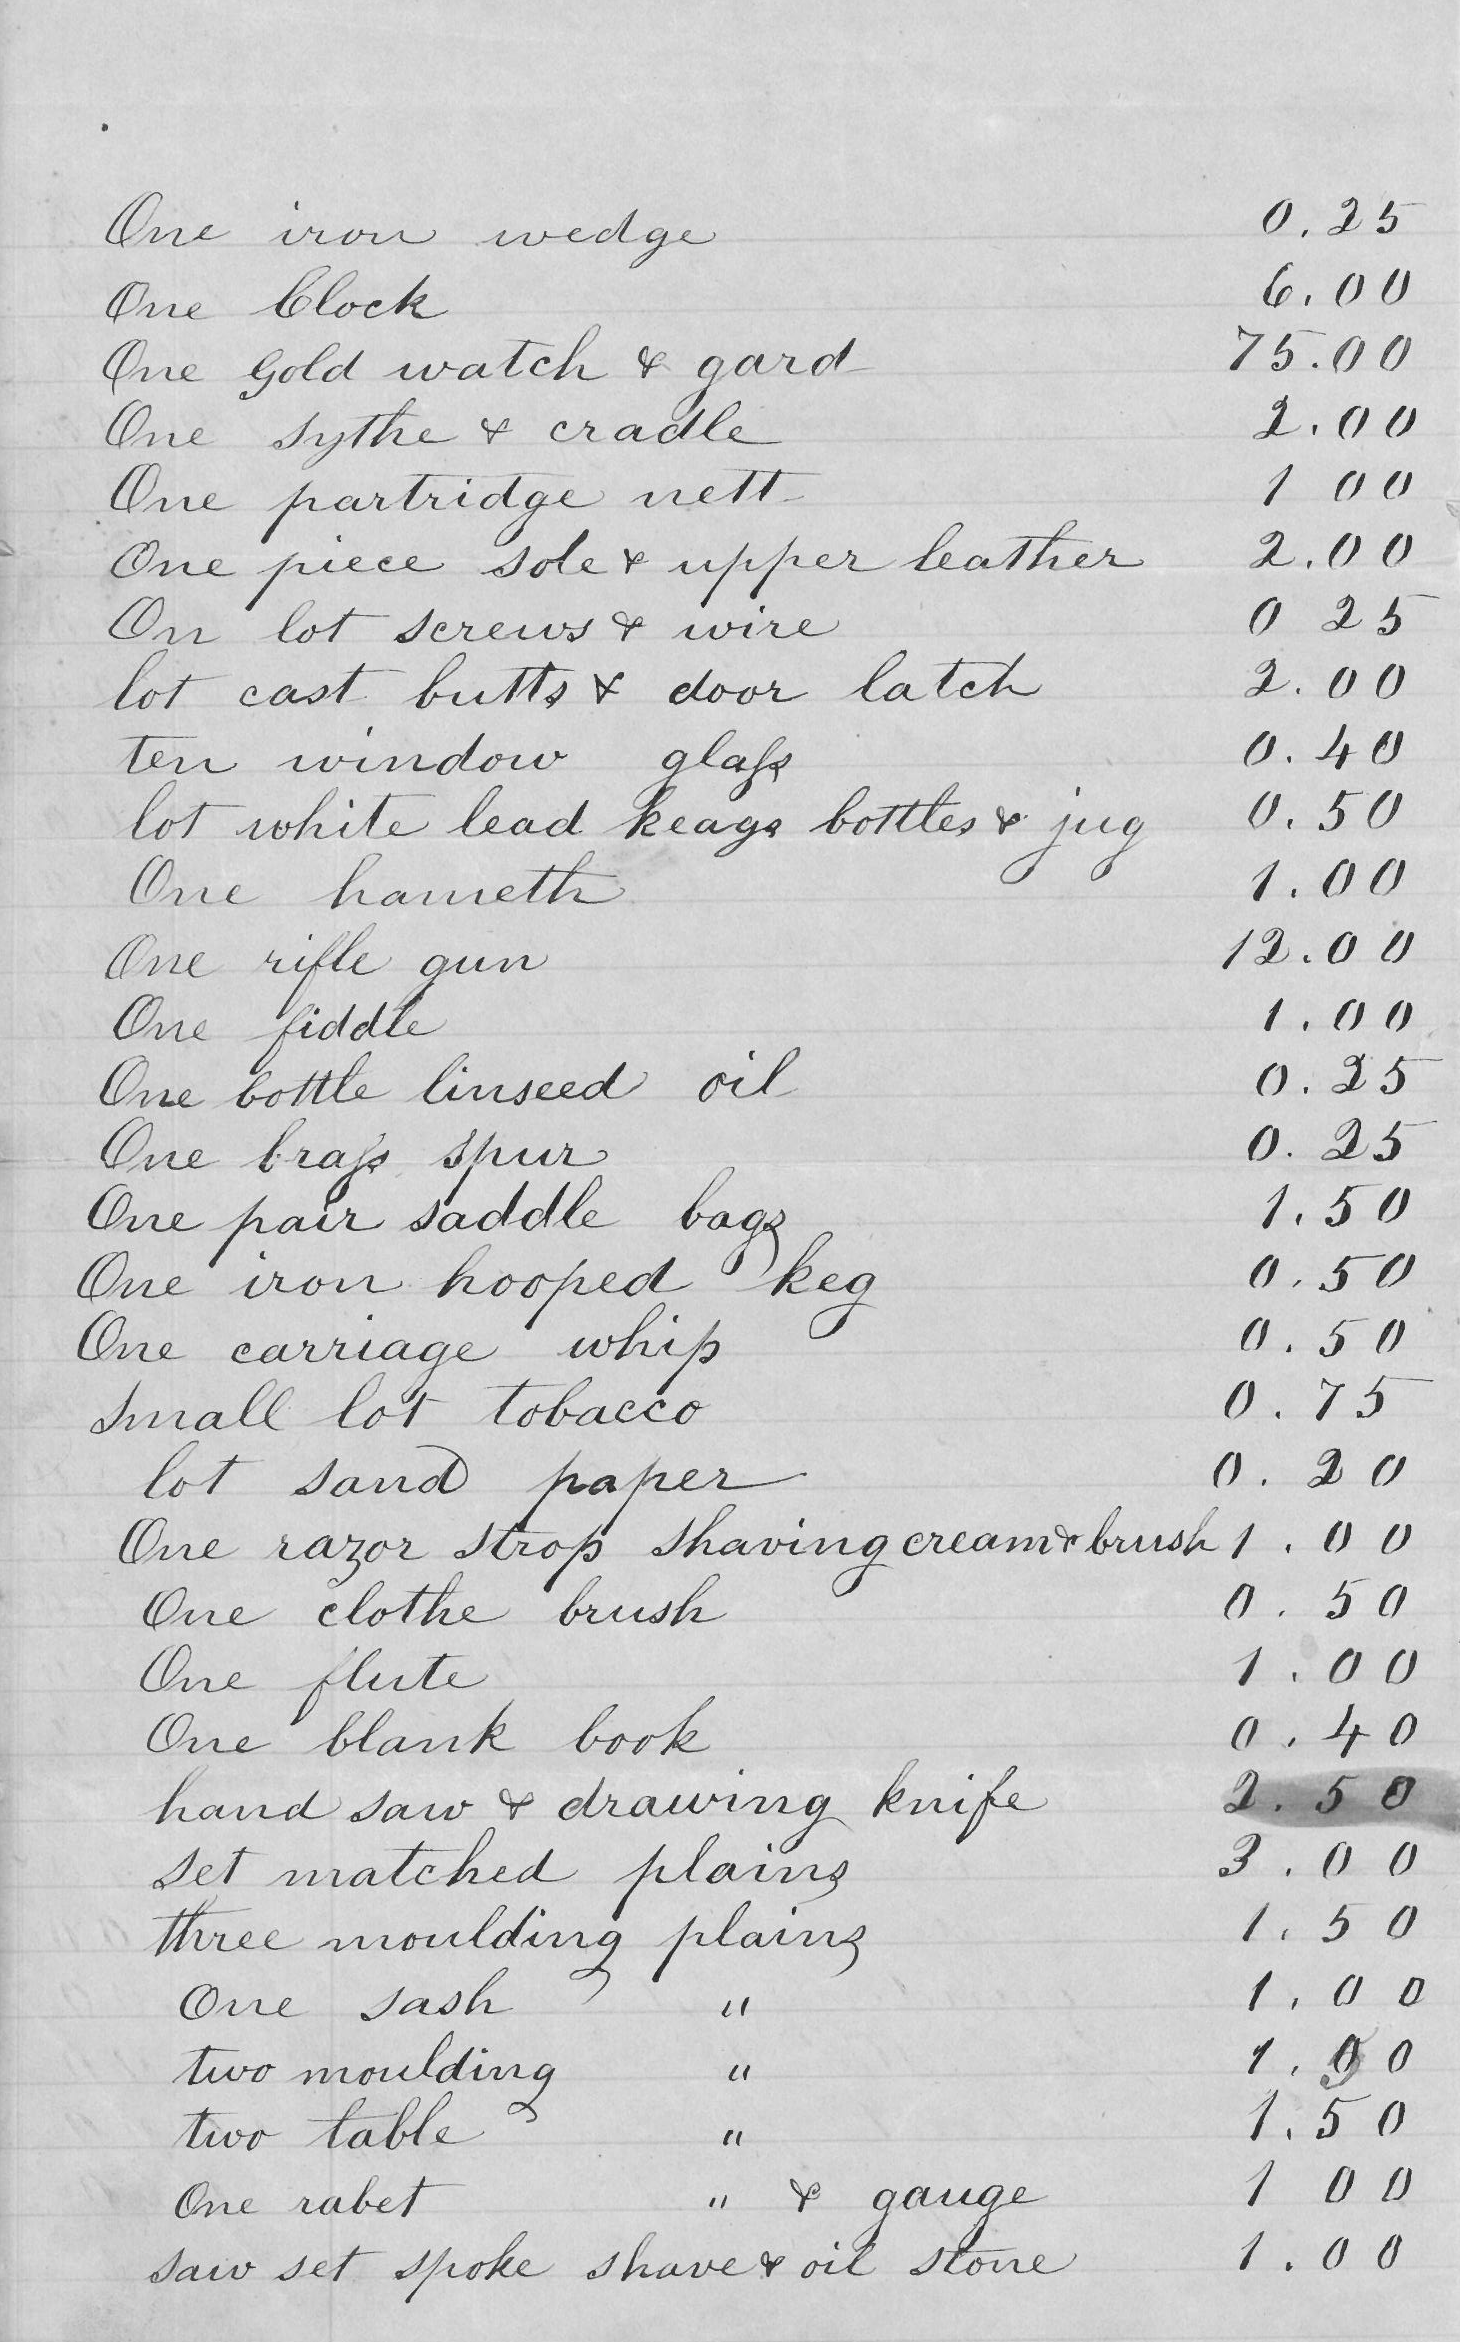 One iron wedge 0.25
One Clock 6.00
One Gold watch & gard 75.00
One sythe & cradle 2.00
One partridge nett 1 00
One piece sole & upper leather 2.00
On lot screws & wire 0 25
lot cast butts & door latch 2.00
ten window glass 0.40
lot white lead keags bottles & jug 0.50
One hameth 1.00
One rifle gun 12.00
One fiddle 1.00
One bottle linseed oil 0.25
One brass spur 0.25
One pair saddle bags 1.50
One iron hooped keg 0.50
One carriage whip 0.50
Small lot tobacco 0.75
lot sand paper 0.20
One razor strop shaving cream & brush 1.00
One clothe brush 0.50
One flute 1.00
One blank book 0.40
hand saw & drawing knife 2.50
set matched plains 3.00
three moulding plains 1.50
One sash " 1.00
two moulding "
two table " 1.50
One rabet " & gauge 1 00
saw set spoke shave & oil stone 1.00